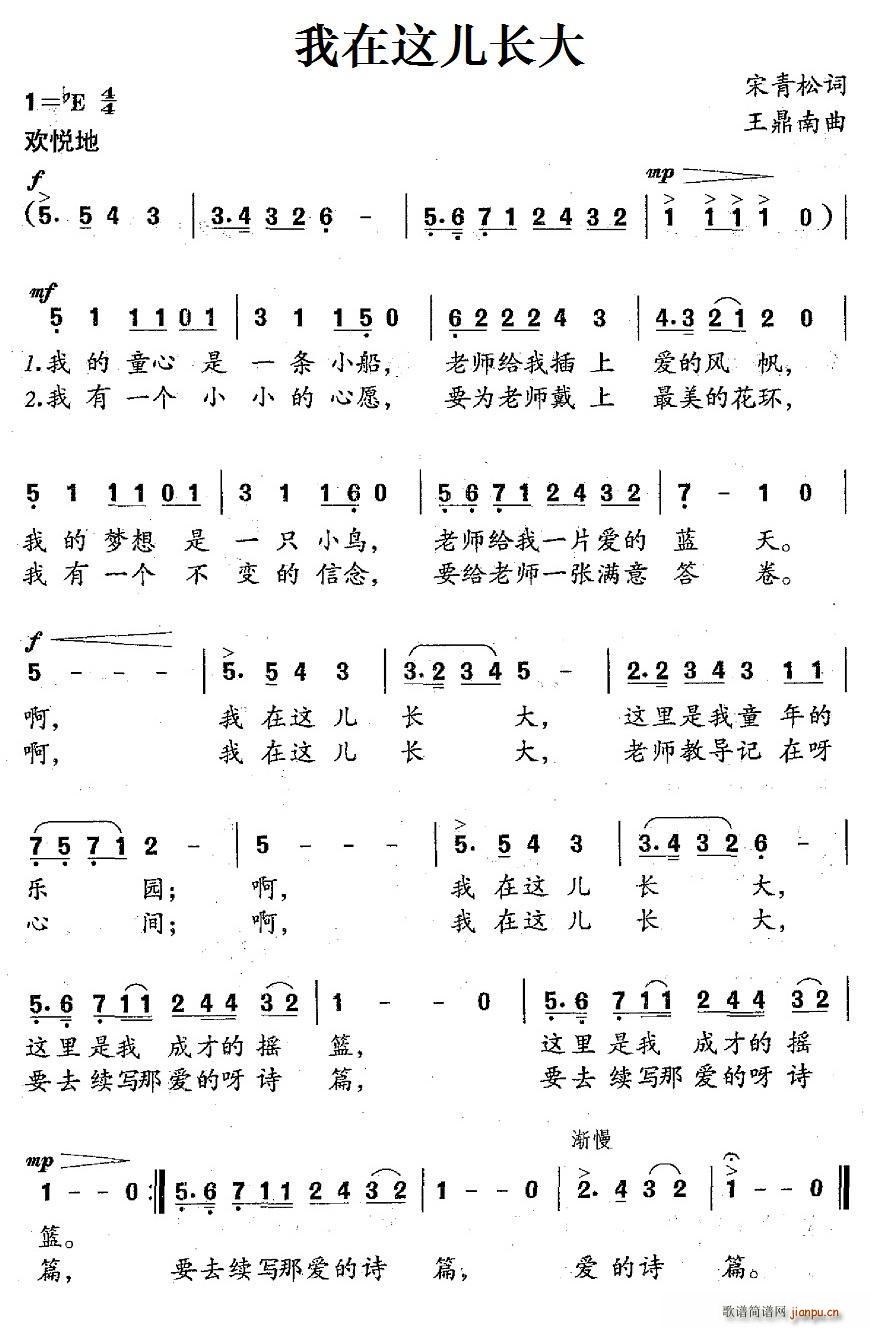 我在这儿长大
宋青松词
1=♭E 4/4
王鼎南曲
欢悦地
f
mp
(5. 5 4 3 | 3.4 3 2 6 - | 5.6 7 1 2 4 3 2 | 1 1 1 1 0) |
mf
5 1 1 1 0 1 | 3 1 1 5 0 | 6 2 2 2 4 3 | 4.3 2 1 2 0 |
1.我 的 童心 是 一 条 小船, 老师给我插 上 爱的风 帆,
2.我 有 一个 小 小 的 心愿, 要为老师戴 上 最美的花环,
5 1 1 1 0 1 | 3 1 1 6 0 | 5 6 7 1 2 4 3 2 | 7 - 1 0 |
我 的 梦想 是 一 只 小鸟, 老师给我一片爱的 蓝 天。
我 有 一个 不 变 的 信念, 要给老师一张满意 答 卷。
f
5 - - - | 5. 5 4 3 | 3.2 3 4 5 - | 2.2 3 4 3 1 1 |
啊, 我 在这 儿 长 大, 这里是我童 年的
啊, 我 在这 儿 长 大, 老师教导记 在呀
7 5 7 1 2 - | 5 - - - | 5. 5 4 3 | 3.4 3 2 6 - |
乐 园; 啊, 我 在这 儿 长 大,
心 间; 啊, 我 在这 儿 长 大,
5.6 7 1 1 2 4 4 3 2 | 1 - - 0 | 5.6 7 1 1 2 4 4 3 2 |
这里是我 成才的摇 篮, 这里是我 成才的摇
要去续写那爱的呀诗 篇, 要去续写那爱的呀诗
渐慢
mp
1 - - 0 :‖ 5.6 7 1 1 2 4 3 2 | 1 - - 0 | 2. 4 3 2 | 1 - - 0 ‖
篮。
篇, 要去续写那爱的诗 篇, 爱 的 诗 篇。
歌谱简谱网 jianpu.cn